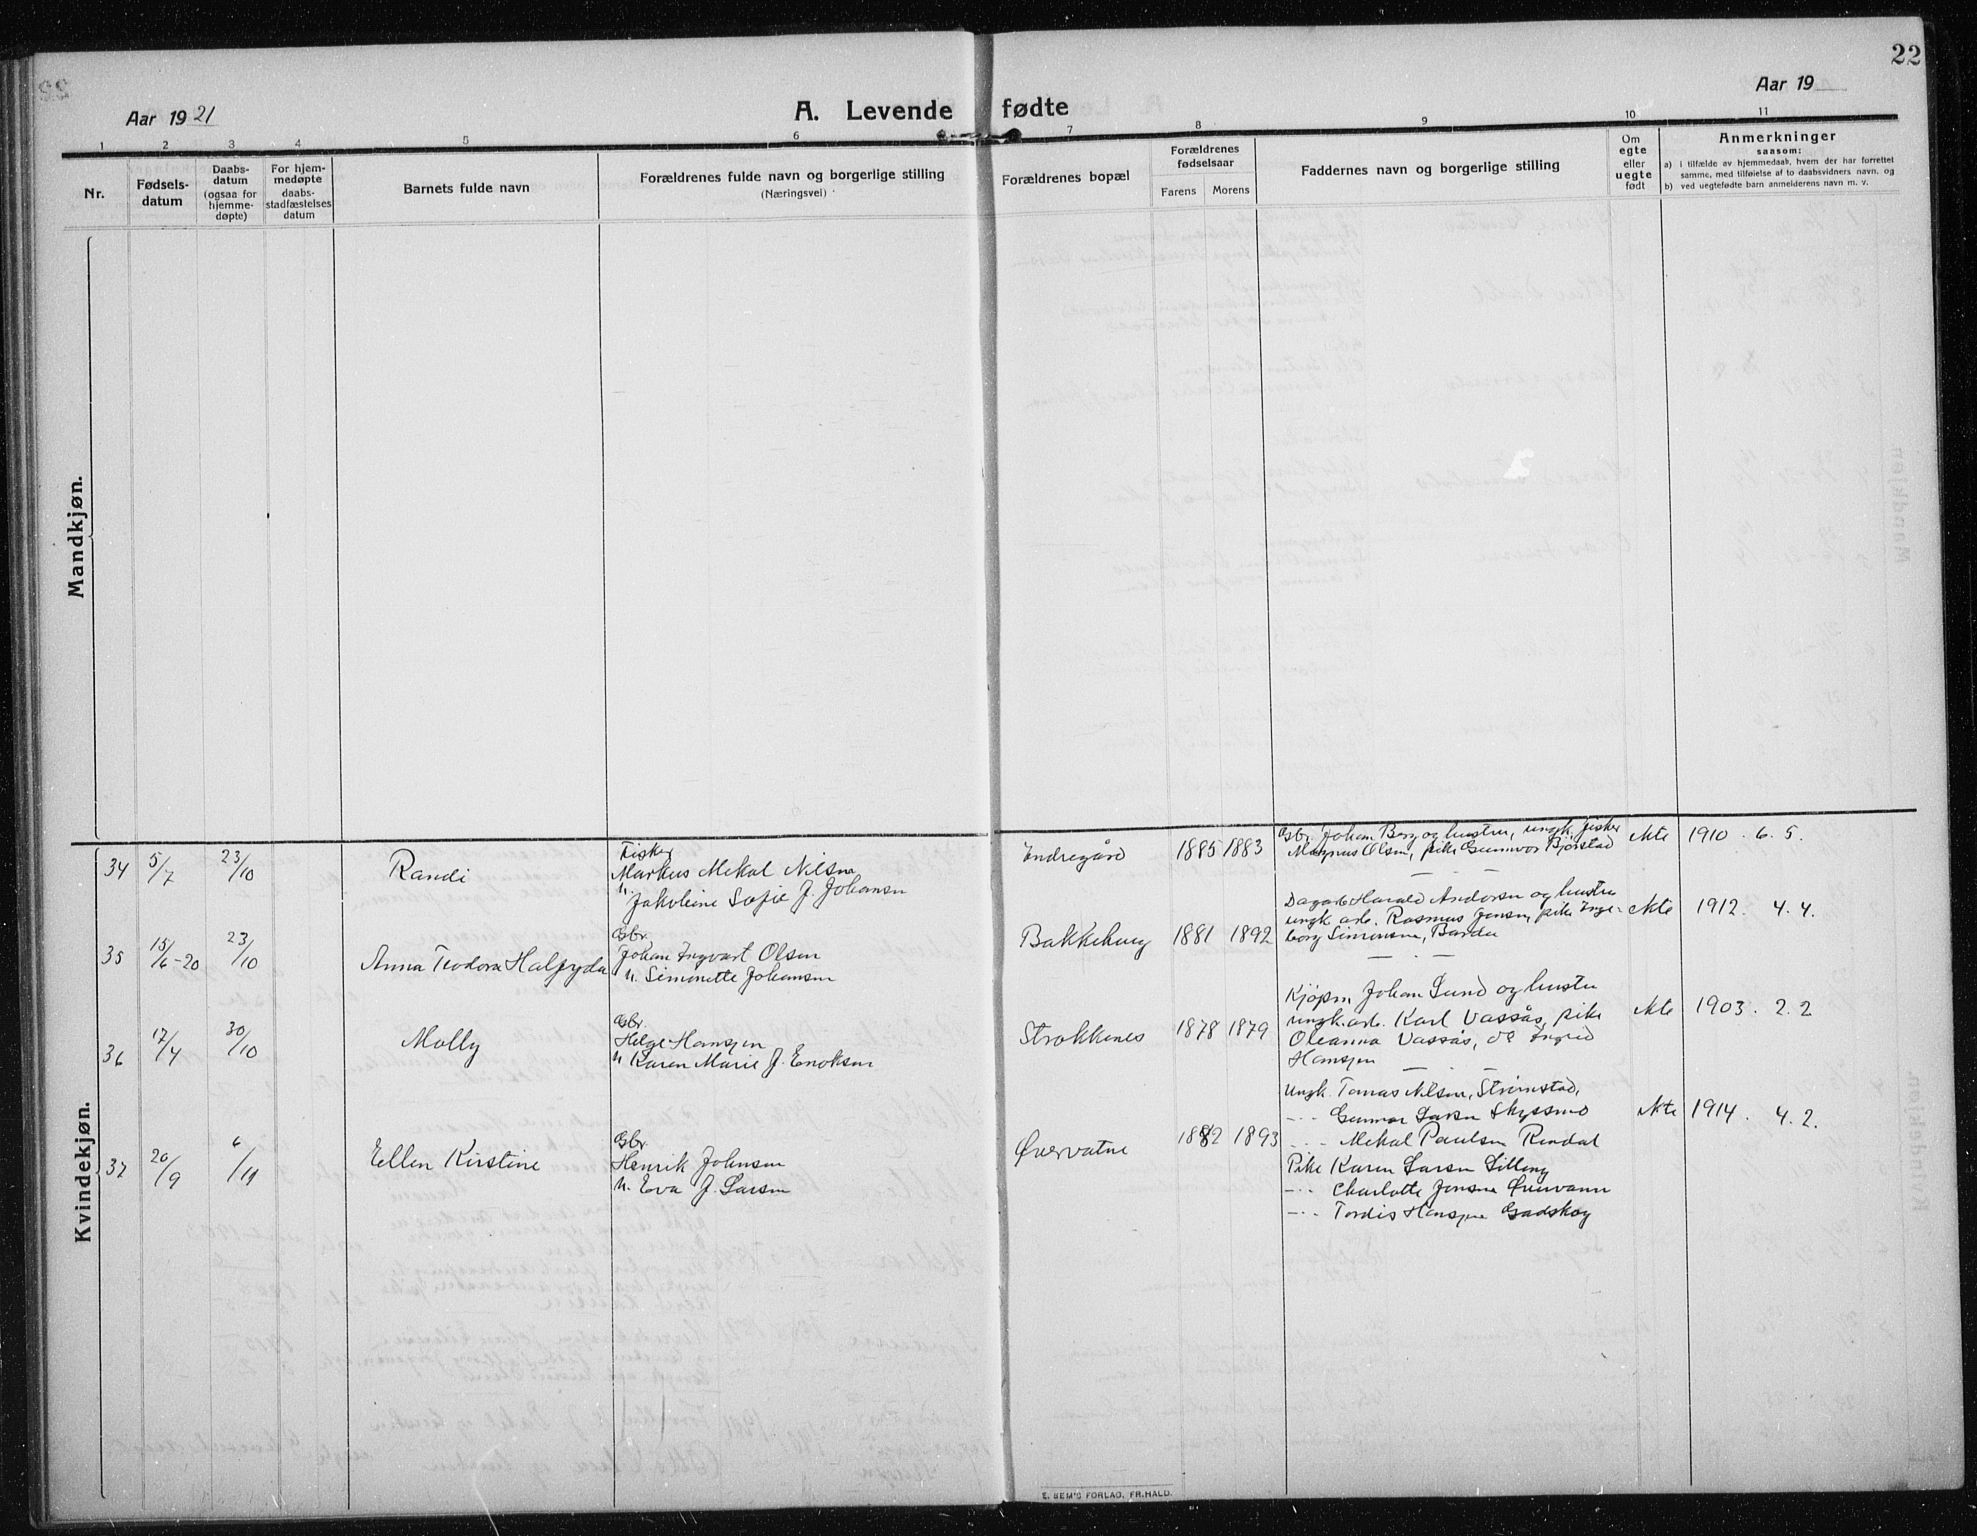 22
Aar 1921
A. Levende fødte
Aar 19
1 2 3 4 5 6 7 8 9 10 11
Nr.
Fødsels-
datum
Daabs-
datum
(ogsaa for
hjemme-
døpte)
For hjem-
medøpte
daabs-
stadfæstelses
datum
Barnets fulde navn
Forældrenes fulde navn og borgerlige stilling
(Næringsvei)
Forældrenes bopæl
Forældrenes
fødselsaar
Farens Morens
Faddernes navn og borgerlige stilling
Om
egte
eller
uegte
født
Anmerkninger
saasom:
a) i tilfælde av hjemmedaab, hvem der har forrettet
samme, med tilføielse af to daabsvidners navn, og
b) ved uegtefødte barn anmelderens navn m. v.
Mandkjøn.
Kvindekjøn.
34 5/7 23/10 Randi
Fisker
Markus Mekal Nilsen
u. Jakobine Sofie f. Johansen
Indregård 1885 1883
Gbr. Johan Berg og hustru, ungk. fisker
Magnus Olsen, pike Gunnvor Bjørstad
ekte 1910. 6. 5.
35 15/6-20 23/10 Anna Teodora Halfryda
Gbr.
Johan Ingvart Olsen
u. Simonette Johansen
Bakkehaug 1881 1892
Dagarb. Harald Andersen og hustru
ungk. arb. Rasmus Jensen, pike Inge-
borg Simonsen, Bardu
ekte 1912. 4. 4.
36 17/4 30/10 Molly
Gbr.
Helge Hansen
u. Karen Marie f. Enoksen
Strokkenes 1878 1879
Kjøpm. Johan Lund og hustru
ungk. arb. Karl Vassås, pike
Oleanna Vassås, do Ingrid
Hansen
ekte 1903. 2. 2
37 20/9 6/11 Ellen Kirstine
Gbr.
Henrik Johnsen
u. Eva f. Larsen
Øvervatne 1882 1893
Ungk. Tomas Nilsen, Strømstad,
-.- Gunnar Larsen Skyssmo
-.- Mekal Paulsen Rendal
Pike Karen Larsen
-.- Charlotte Jensen Øvervann
-.- Tordis Hansen Gadskog
ekte 1914. 4. 2.
E. SEM'S FORLAG, FR.HALD.